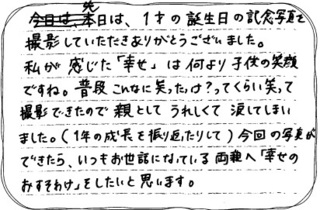 先日は、1才の誕生日の記念写真を
撮影していただきありがとうございました。
私が感じた「幸せ」は何より子供の笑顔
ですね。普段こんなに笑ったっけ?ってくらい笑って
撮影できたので親としてうれしくて涙してしまい
ました。(1年の成長を振り返たりして)今回の写真が
できたら、いつもお世話になっている両親へ「幸せの
おすそわけ」をしたいと思います。